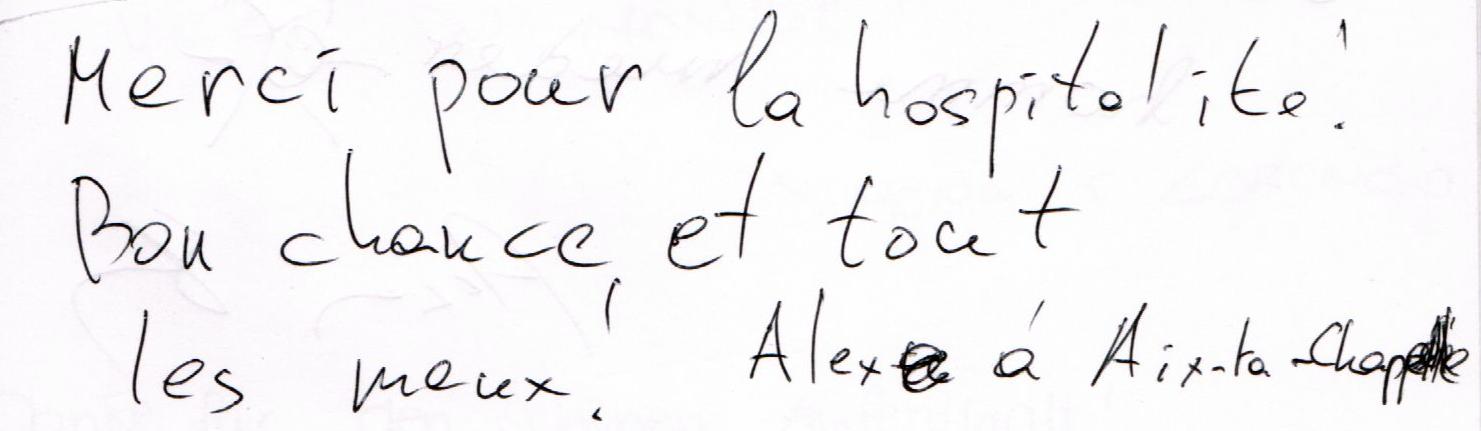 Merci pour la hospitalité!
Bon chance, et tout
les meux! Alex á Aix-la-Chapelle